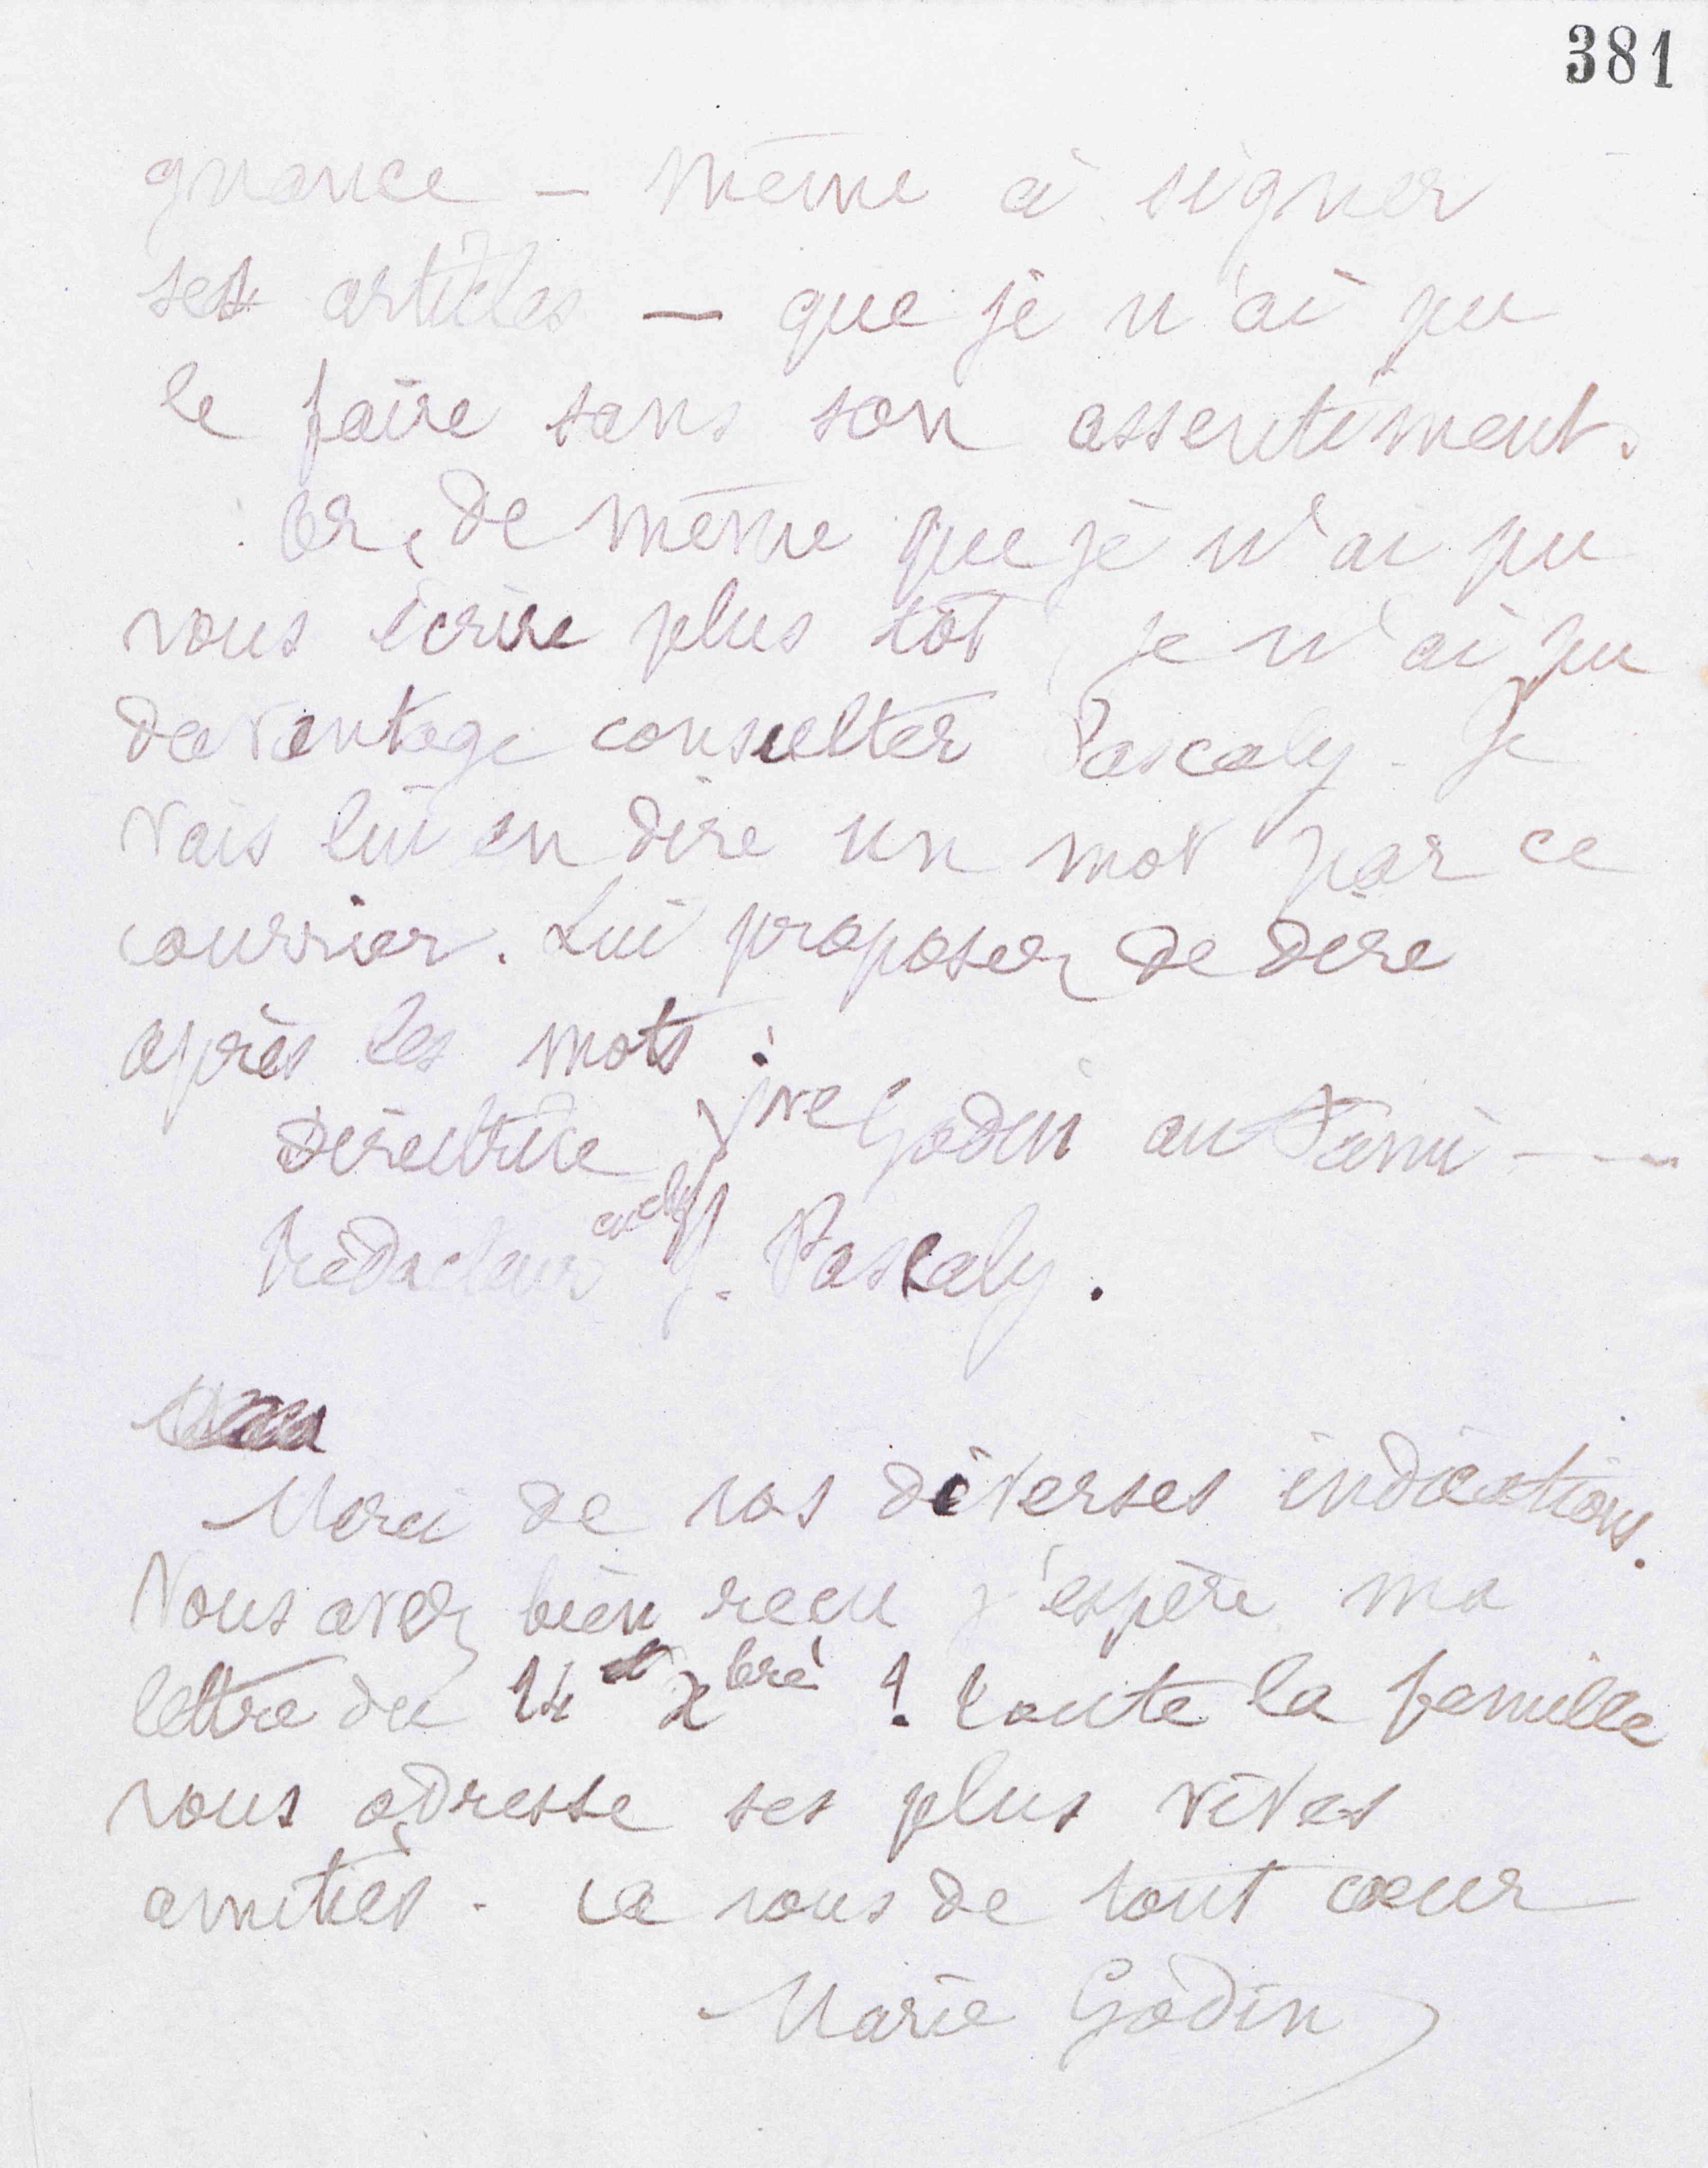 381
gnance — même à signer
ses articles — que je n'ai pu
le faire sans son assentiment.
Or, de même que je n'ai pu
vous écrire plus tôt, je n'ai pu
davantage consulter Pascaly. Je
vais lui en dire un mot par ce
courrier. Lui proposer de dire
après les mots :
Directrice Vve Godin au Fami ——
Rédacteur J. Pascaly.
Merci de vos diverses indications.
Vous avez bien reçu j'espère ma
lettre du 14 Xbre ? Toute la famille
vous adresse ses plus vives
amitiés. À vous de tout cœur
Marie Godin